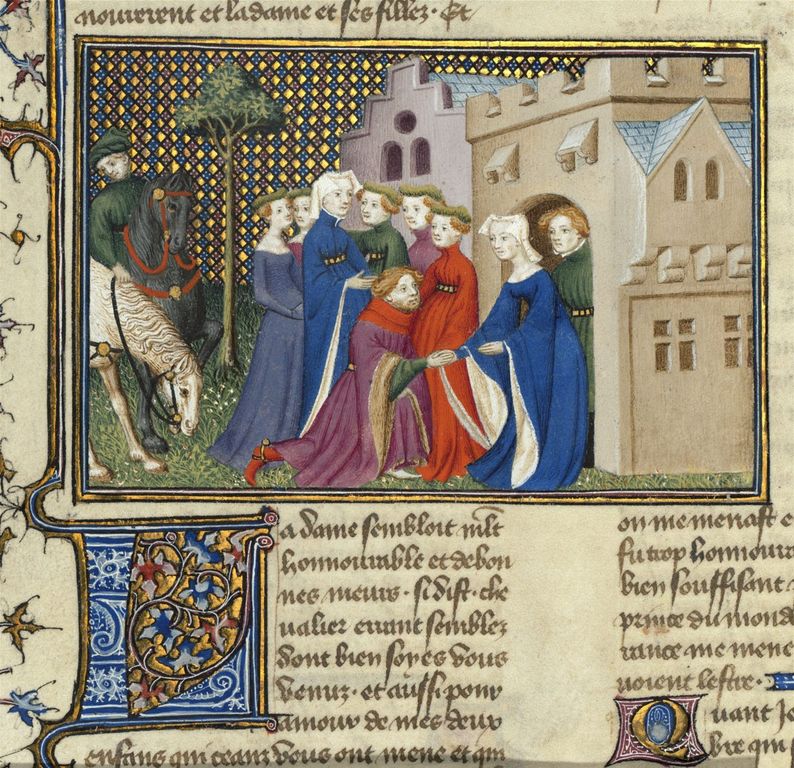 et ladame et ses fillez. Et
La dame sembloit mlt
honnourable et de bon
nes meurs. si dist. che
ualier errant semblez
dont bien soyes vous
venuz. et aussi pour
amour de mes deux
enfans qui ceanz vous ont mene et qui
on me menast e
fu trop honnour
bien souffisant
prince du mond
rance me mene
uoient lestre.
Quant Je
bre qui